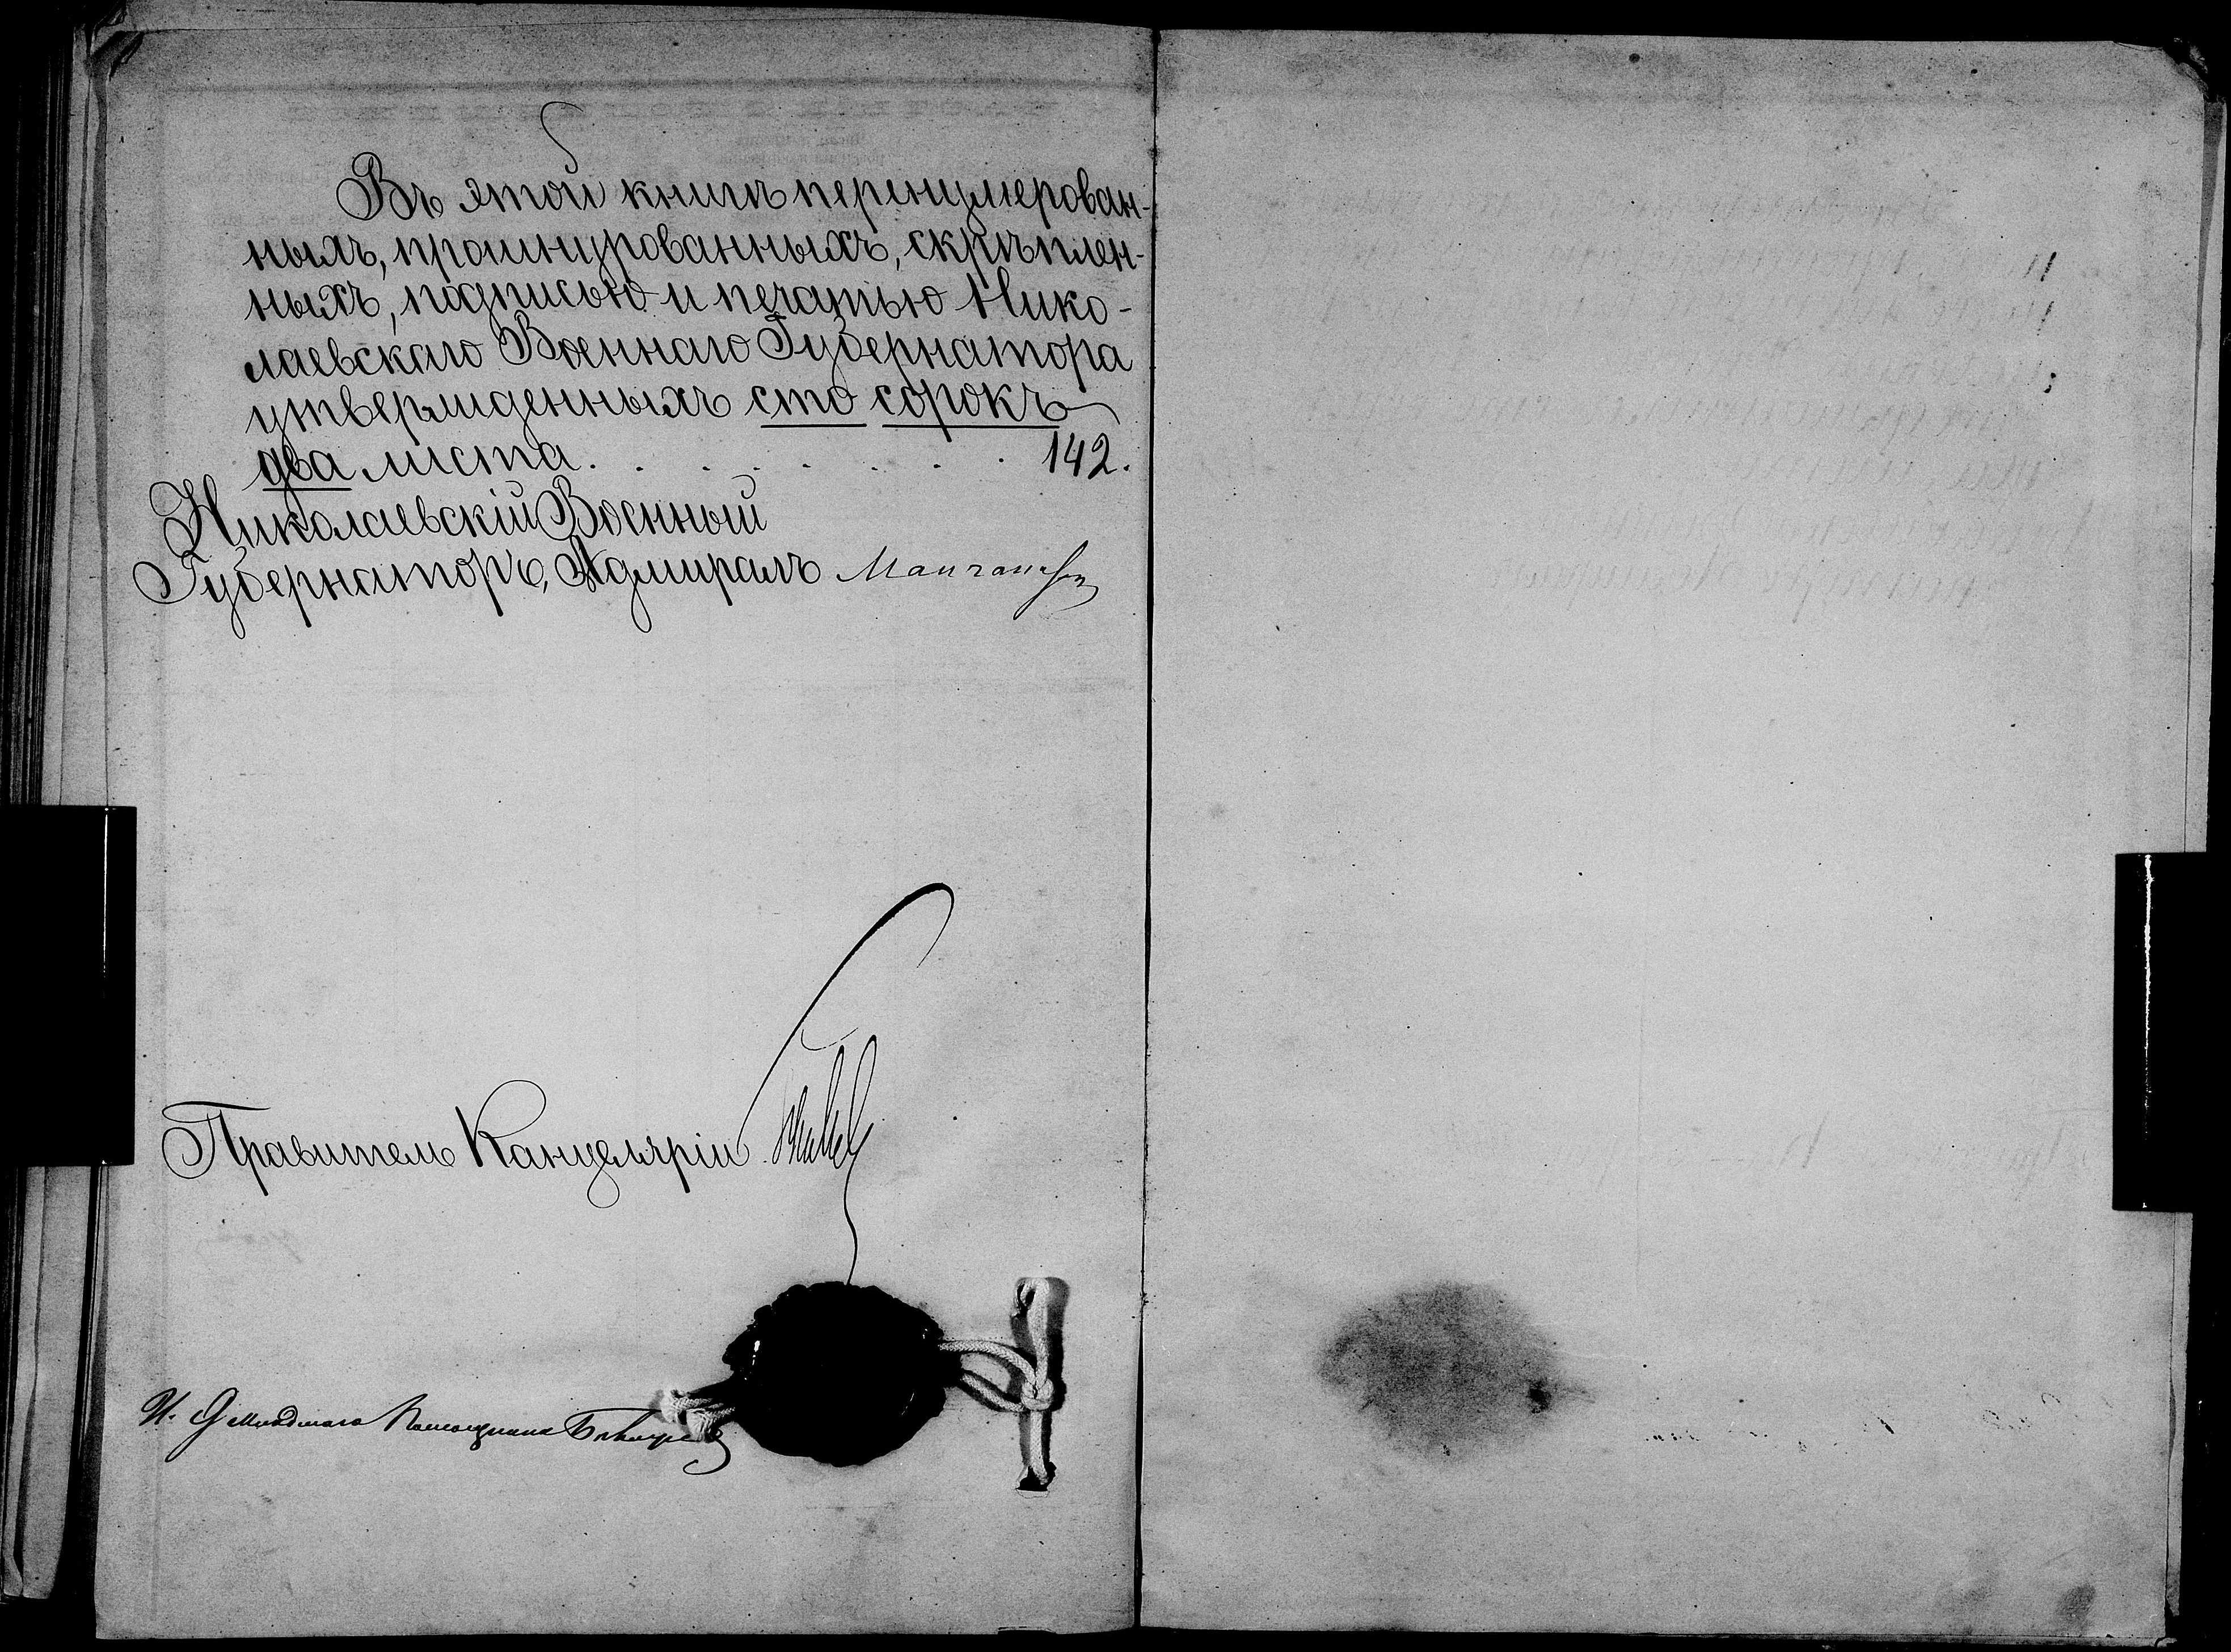 Въ этой книгѣ перенумерован-
ныхъ, прошнурованныхъ, скрѣплен-
ныхъ, подписью и печатью Нико-
лаевскаго Военнаго Губернатора
утвержденныхъ сто сорокъ
два листа. . . . . . . . 142.
Николаевскій Военный
Губернаторъ, Адмиралъ
Правитель Канцеляріи
И. Д. Младшаго Помощника